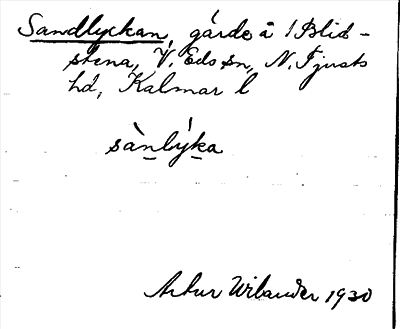 Sandlyckan, gärde å 1 Blid-
stena, V. Eds sn, N. Tjusts
hd, Kalmar l
sànlýka
Artur Wilander 1930